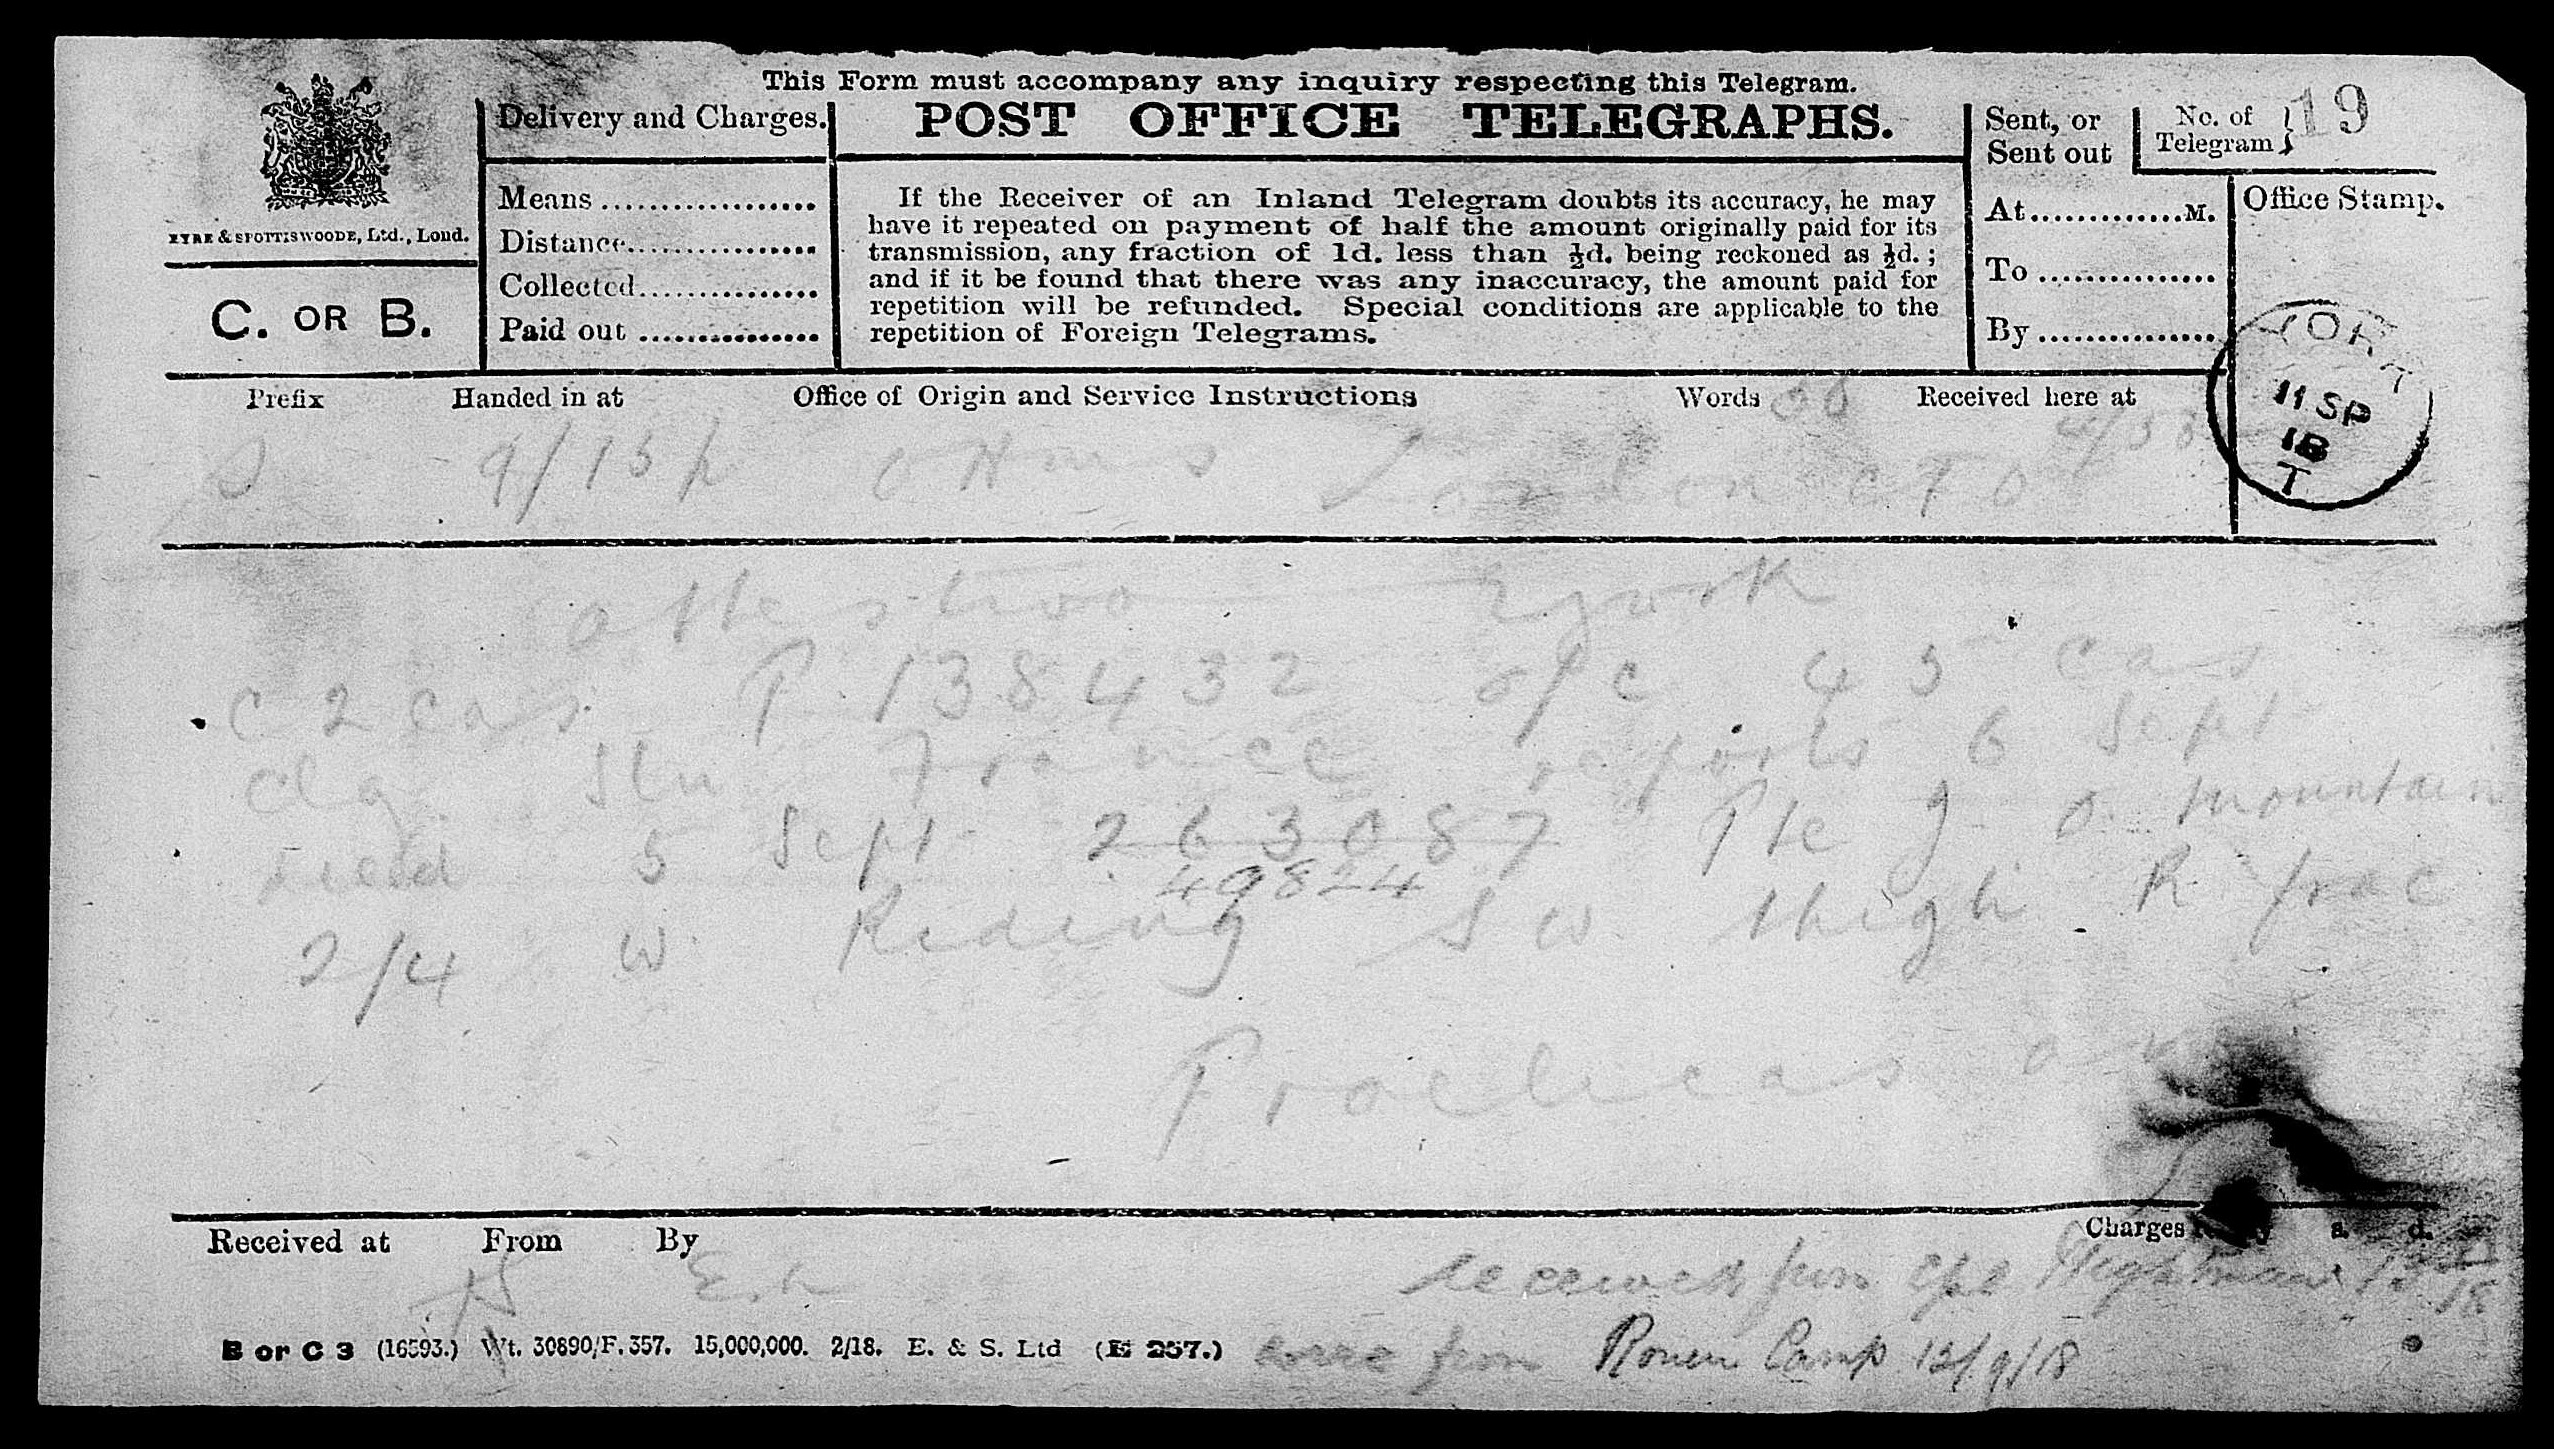 This Form must accompany any inquiry respecting this Telegram.
POST OFFICE TELEGRAPHS.
EYRE & SPOTTISWOODE, Ltd., Lond.
C. OR B.
Delivery and Charges.
Means
Distance
Collected
Paid out
If the Receiver of an Inland Telegram doubts its accuracy, he may
have it repeated on payment of half the amount originally paid for its
transmission, any fraction of 1d. less than ½d. being reckoned as ½d.;
and if it be found that there was any inaccuracy, the amount paid for
repetition will be refunded. Special conditions are applicable to the
repetition of Foreign Telegrams.
Sent, or
Sent out
At M.
To
By
No. of
Telegram } 19
Office Stamp.
YORK
11 SP
18
T
Prefix Handed in at Office of Origin and Service Instructions Words Received here at
S 9/15p OHms London CTO
York
c2 cas P 138432 o/c 45 cas
clg Stn France reports 6 Sept
Field 5 Sept 263087 Pte J O mountain
49824
2/4 W Riding S W thigh R frac
Received at From By Charges
received from Cpl
from Rouen Camp 12/9/18
B or C 3 (16593.) Wt. 30890/F.357. 15,000,000. 2/18. E. & S. Ltd (E 257.)